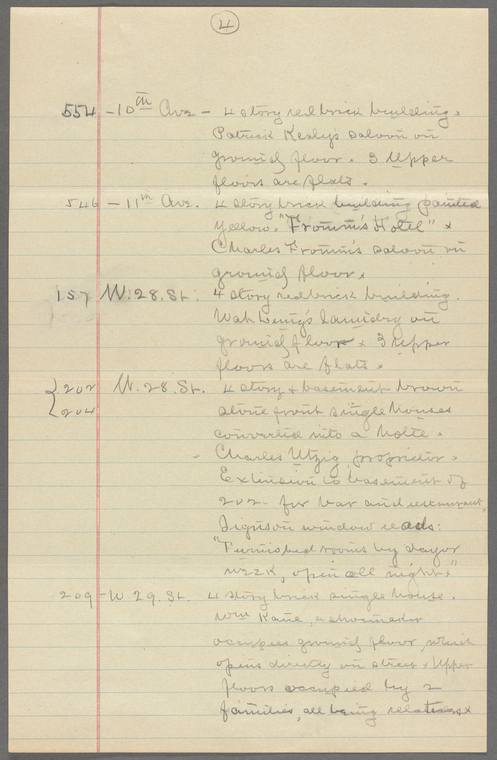 4
554 - 10th Ave - 4 story red brick building.
Patrick Kealy's saloon on
ground floor. 3 Upper
floors are flats.
546 - 11th Ave. 4 story brick building painted
yellow. "Fromm's Hotel" x
Charles Fromm's saloon on
ground floor.
157 W. 28. St. 4 story red brick building.
Wah laundry on
ground floor x 3 Upper
floors are flats.
{202 W. 28. St. 4 story & basement brown
{204 stone front single houses
converted into a hotle.
Charles Utzig, proprietor.
Extension to basement of
202 - for bar and restaurant
Sign on window reads:
"Furnished rooms by day or
week, open all night."
209 - W 29. St. 4 story brick single house.
Wm Kane, a shoemaker
occupies ground floor, which
opens directly on street x Upper
floors occupied by 2
families, all being relations x